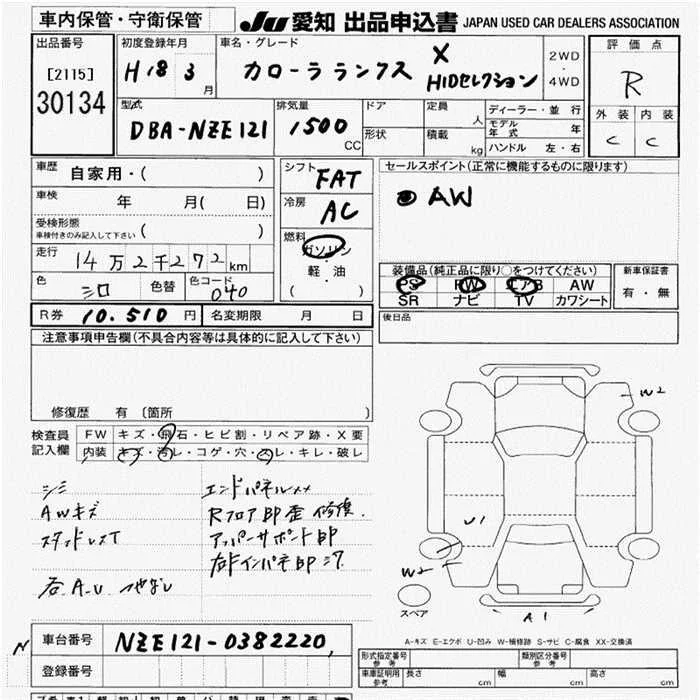 車内保管・守衛保管
JU 愛知 出品申込書 JAPAN USED CAR DEALERS ASSOCIATION
出品番号
[2115]
30134
初度登録年月
H18 3 月
車名・グレード
カローラランクス X
HIDセレクション
2WD
・
4WD
評価点
R
外装 内装
C C
型式
DBA-NZE121
排気量
1500 CC
ドア
形状
定員 人
積載 kg
ディーラー・並行
モデル年式 年
ハンドル 左・右
車歴 自家用・( )
車検 年 月( 日)
受検形態
車検付きのみ記入して下さい ( )
走行 14万2千272km
色 シロ 色替 色コード 040
シフト FAT
冷房 AC
燃料
ガソリン
・
軽・油
( )
セールスポイント(正常に機能するものに限ります)
AW
装備品(純正品に限り○をつけてください)
PS PW エアB AW
SR ナビ TV カワシート
新車保証書
有・無
R券 10.510 円 名変期限 月 日
後日品
注意事項申告欄(不具合内容等は具体的に記入して下さい)
修復歴 有〔箇所 〕
検査員記入欄
FW キズ・飛石・ヒビ割・リペア跡・X要
内装 キズ・汚レ・コゲ・穴・スレ・キレ・破レ
シミ
AWキズ
スタッドレスT
エンドパネルXX
Rフロア部歪 修復.
アッパーサポート部
W2
U1
W2
A1
スペア
A-キズ E-エクボ U-凹み W-補修跡 S-サビ C-腐食 XX-交換済
車台番号 NZE121-0382220
登録番号
形式指定番号 参考
類別区分番号 参考
車庫証明用 参考 長さ cm 幅 cm 高さ cm